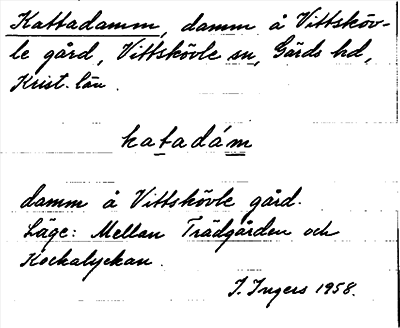 Kattadamm, damm å Vittsköv-
le gård, Vittskövle sn, Gärds hd,
Krist. län.
katadám
damm å Vittskövle gård.
Läge: Mellan Trädgården och
Kockalyckan.
I. Ingers 1958.